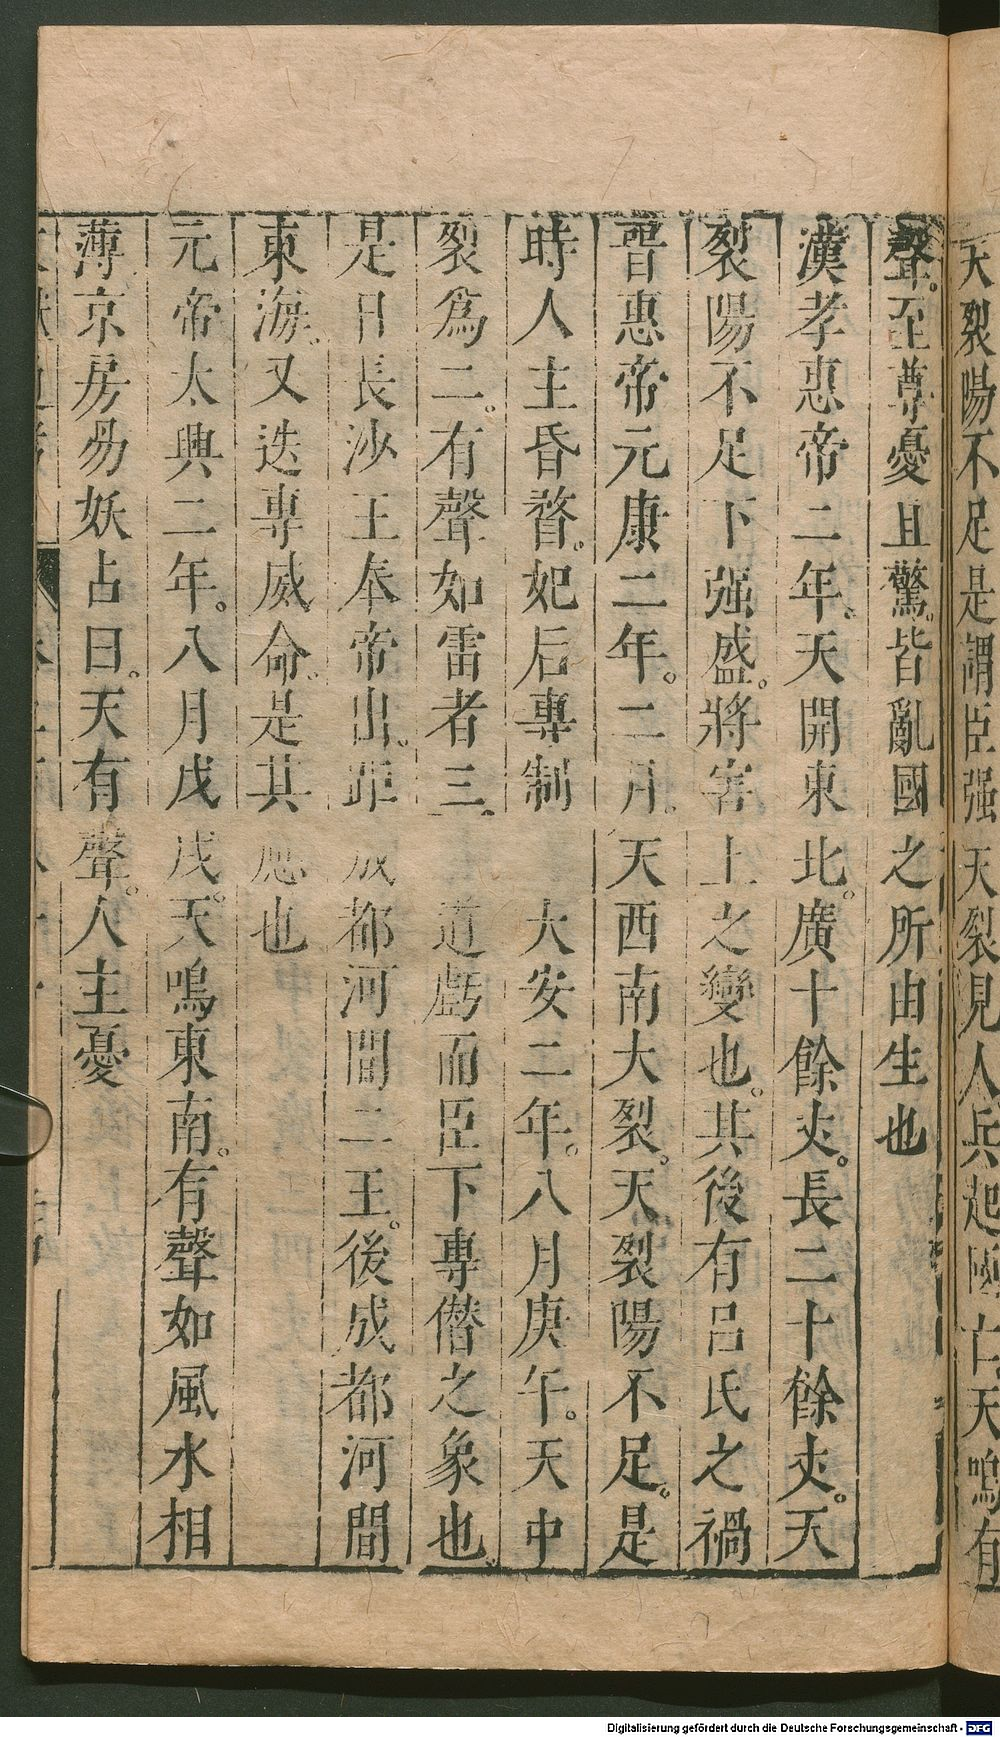 天裂陽不足是謂臣强天裂見人兵起國亡天鳴有
聲。至尊憂且驚。皆亂國之所由生也
漢孝惠帝二年。天開東北。廣十餘丈。長二十餘丈。天
裂陽不足下强盛。將害上之變也。其後有呂氏之禍
晉惠帝元康二年。二月。天西南大裂。天裂陽不足。是
時人主昏瞀。妃后專制 大安二年。八月庚午。天中
裂爲二。有聲如雷者三 道虧而臣下專僭之象也。
是日長沙王奉帝出。距成都河間二王。後成都河間
東海。又迭專威命。是其應也
元帝太興二年。八月戊戌。天鳴東南。有聲如風水相
薄京房易妖占曰。天有聲。人主憂
Digitalisierung gefördert durch die Deutsche Forschungsgemeinschaft - DFG